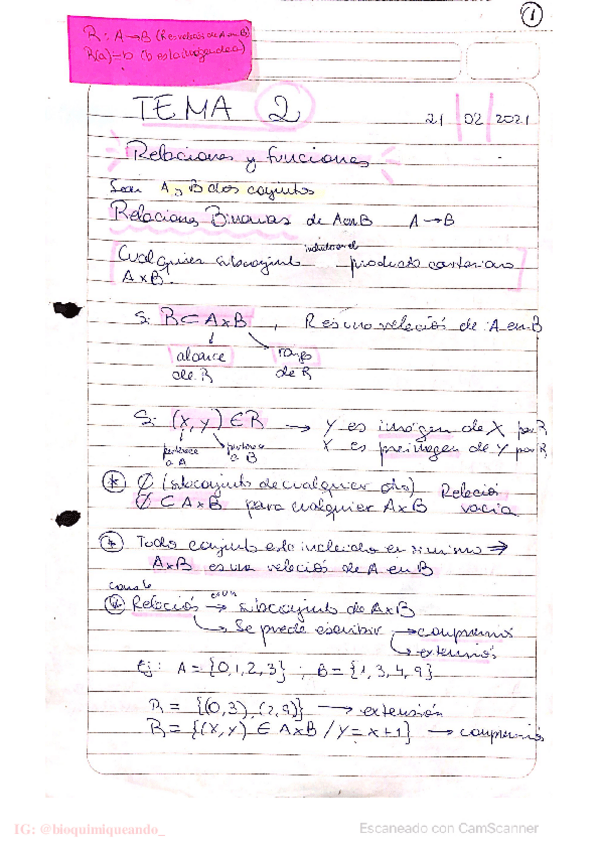 1
R: A→B (R es relación de A en B)
R(a)=b (b es la imagen de a)
TEMA 2
21 | 02 | 2021
Relaciones y funciones
Sean A y B dos conjuntos
Relaciones Binarias de A en B A→B
Cualquier subconjunto incluido en el producto cartesiano
A×B.
Si R⊂A×B , R es una relación de A en B
alcance rango
de R de R
Si (x,y) ∈ R → y es imagen de x por R
x es preimagen de y por R
pertenece a A pertenece a B
* ∅ (subconjunto de cualquier otro) Relación
∅ ⊂ A×B para cualquier A×B vacía
* Todo conjunto está incluido en sí mismo ⇒
A×B es una relación de A en B
* Relación → es un subconjunto de A×B
→ Se puede escribir → comprensión
→ extensión
Ej: A = {0,1,2,3} ; B = {1,3,4,9}
R = {(0,3),(2,9)} → extensión
R = {(x,y) ∈ A×B / y = x+1} → comprensión
IG: @bioquimiqueando_
Escaneado con CamScanner